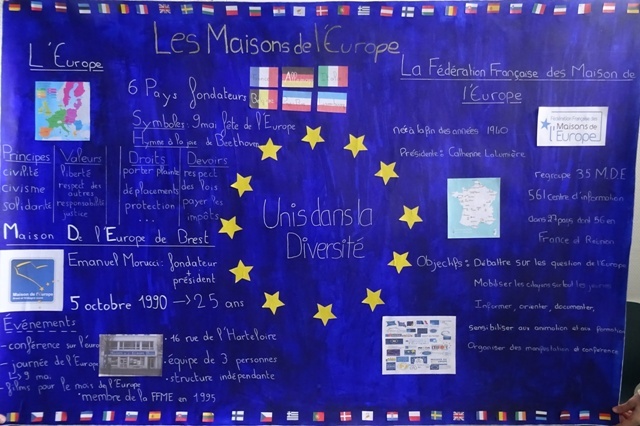 Les Maisons de l'Europe
L'Europe
6 Pays fondateurs
Symboles: 9 mai fête de l'Europe
Hymne à la joie de Beethoven
Principes
civilité
civisme
solidarité
Valeurs
liberté
respect des
autres
responsabilité
justice
Droits
porter plainte
déplacements
protection
...
Devoirs
respect
des lois
payer les
impôts
Maison De l'Europe de Brest
Emanuel Morucci: fondateur
+
président
5 octobre 1990 → 25 ans
Événements
- conférence sur l'euro
- journée de l'Europe
↳ 9 mai
- films pour le mois de l'Europe
• 16 rue de l'Harteloire
• équipe de 3 personnes
• structure indépendante
• membre de la FFME en 1995
Unis dans la
Diversité
La Fédération Française des Maison de
l'Europe
née à la fin des années 1960
Présidente: Catherine Lalumière
Fédération Française des
Maisons de
l'Europe
regroupe 35 M.D.E
561 centre d'information
dans 27 pays dont 56 en
France et Réunion
Objectifs: Débattre sur les question de l'Europe
Mobiliser les citoyens surtout les jeunes
Informer, orienter, documenter,
sensibiliser aux animation et aux formation
Organiser des manifestation et conférence